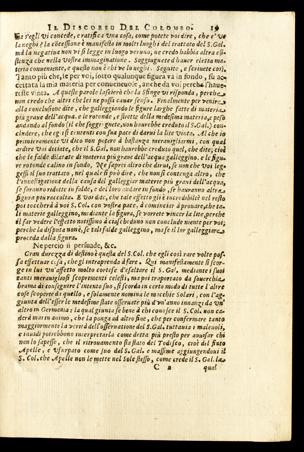 IL DISCORSO DEL COLOMBO. 19
te regli vi concede, e ratifica una cosa, come potete voi dire, che e' ve
la neghi? la cõcessione è manifesta in molti luoghi del trattato del S. Gal.
mà la negatiua non vi si legge in luogo veruno, ne credo habbia altra essi-
stenza che nella vostra immaginatione. Soggiugnete d'hauer eletta ma-
teria conueniente, e quello non è chi ve lo neghi. Seguite, e scriuete così,
Tanto più che, se per voi, sotto qualunque figura và in fondo, fù ac-
cettata la mia materia per conueneuole, anche da voi perche l'hau-
reste vinta. A queste parole lascerò che la Sfinge vi risponda, perche
non credo che altri che lei ne possa cauar senso. Finalmente per venire
alla conclusione dite, che galleggiando le figure larghe fatte di materia
più graue dell'acqua
cedere, che eg i si contenti con sua pace di darui la lite vinta. Al che io
primieramente vi dico non potere à bastanza merauigliarmi, con qual
ardire voi
che le falde dilatate di materia più graue dell'acqua galleggino, e le figu-
re rotonde calino in fondo.
gessi il suo trattato, nel quale si può dire, che non si contenga altro, che
l'inuestigazione della causa del galleggiar materie più graui dell'acqua,
se saranno ridotte in falde, e del loro andare in fondo, se hauranno altra
figura più raccolta. E voi dite, che tale effetto gli è incredibile? nel resto
poi toccherà à voi S. Col. con vostra pace, à cimento à
li materie galleggino, mediante la figura, se vorrete vincer la lite, perche
il far vedere l'effetto notissimo à ciascheduno non conclude niente per voi;
perche la disputa non è, se tali falde galleggino, ma se il lor galleggiare
proceda dalla figura.
Ne percio ti persuade, &c.
Gran durezza di destino è quella del S. Col. che egli così rare volte pos-
sa effettuar cosa, che gli intraprenda à fare. Qui manifestamente si scor-
ge in lui vn'affetto molto cortese d'esaltare il S. Gal. mediante i suoi
tanti merauigliosi scoprimenti celesti, ma poi traportato da souerchia
brama di conseguire l'intento suo, si scorda in certo modo di tutte l'altre
cose scoperte da quello, e solamente nomina le macchie Solari, con l'ag-
giunta dell'esser le medesime state osseruate più d'vn'anno innanzi da vn'
altro in Germania: la qual giunta se bene à chi conosce il S. Col. non ca-
derà mai in animo, che la ponga ad altro fine, che per confermare tanto
maggiormente la verità dell'osseruatione del S. Gal. tuttauia i maleuoli,
e inuidi potrebbono interpretarla come detta più presto per auuisar chi
non lo sapesse, che il ritrouamento sia stato del Todisco, cioè del finto
Apelle, e vsurpato come suo dal S. Gal. e massime aggiungendoui il
S. Col. che Apelle non le mette nel Sole stesso, come crede il S. Gal. la
C 2 qual